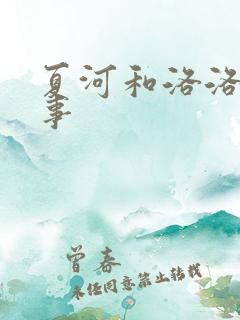 夏河和洛洛
事
曾春
未经同意禁止转载